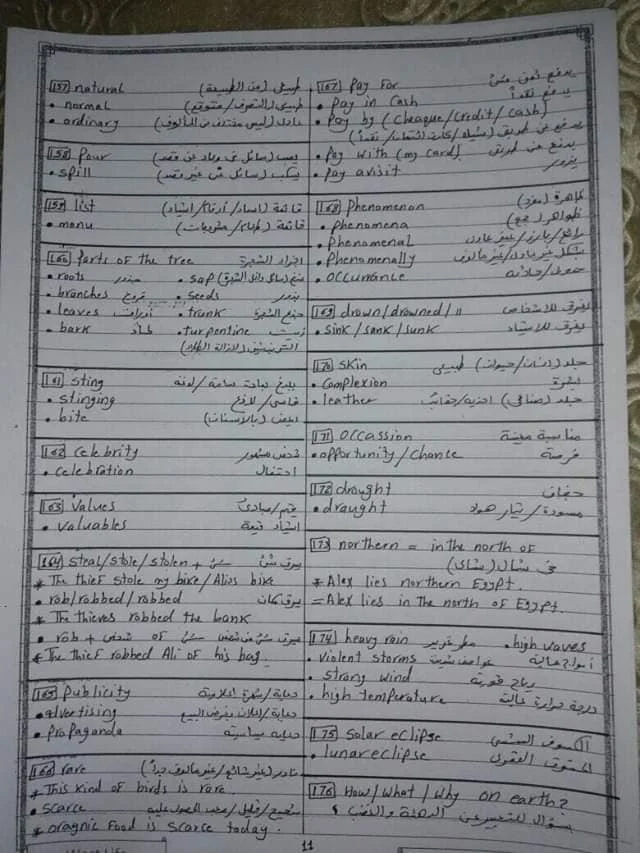 157 natural طبيعي (من الطبيعة)
• normal طبيعي (التصرف/متوقع)
• ordinary عادي (ليس مختلف عن المألوف)
158 Pour
• spill
159 list قائمة (أسماء/أرقام/أشياء)
• menu قائمة (طعام/مشروبات)
160 Parts of the tree أجزاء الشجرة
• roots جذور • sap
• branches فروع • seeds بذور
• leaves أوراق • trunk جذع الشجرة
• bark لحاء • turpentine زيت
161 sting
• stinging
• bite
162 celebrity شخص مشهور
• celebration احتفال
163 Values قيم/مبادئ
• valuables أشياء قيمة
164 steal/stole/stolen + شئ يسرق شئ
* The thief stole my bike/Alias bike
• rob/robbed/robbed يسرق مكان
* The thieves robbed the bank
• rob + شخص of شئ يسرق شئ من شخص
* The thief robbed Ali of his bag.
165 Publicity دعاية/شهرة إعلامية
• advertising دعاية/إعلان بغرض البيع
• Propaganda دعاية سياسية
166 rare نادر (غير شائع/غير مألوف جداً)
* This kind of birds is rare.
• scarce شحيح/قليل/صعب الحصول عليه
* oragnic Food is scarce today.
167 Pay For يدفع ثمن شئ
• Pay in Cash يدفع نقداً
• Pay by (cheaque/credit/cash)
يدفع عن طريق (شيك/كارت ائتمان/نقداً)
• Pay with (my card) يدفع عن طريق
• Pay avisit يزور
168 Phenomenon ظاهرة (مفرد)
• Phenomena ظواهر (جمع)
• Phenomenal رائع/بارز/غير عادي
• Phenomenally بشكل غير عادي/غير مألوف
• occurrance حدوث/حادثة
169 drown/drowned/" يغرق للأشخاص
• sink/sank/sunk يغرق للأشياء
170 skin جلد (إنسان/حيوان) طبيعي
• complexion بشرة
• leather جلد (صناعي) أحذية/حقائب
171 occassion مناسبة معينة
• opportunity/chance فرصة
172 drought جفاف
• draught مسودة/تيار هواء
173 northern = in the north of
في شمال
* Alex lies northern Egypt.
= Alex lies in the north of Egypt.
174 heavy rain مطر غزير • high waves
• violent storms عواصف أمواج عالية
• strong wind رياح قوية
• high temperature درجة حرارة عالية
175 solar eclipse الكسوف الشمسي
• lunar eclipse
176 How/what/why on earth?
سؤال للتعبير عن الدهشة والغضب ؟
11